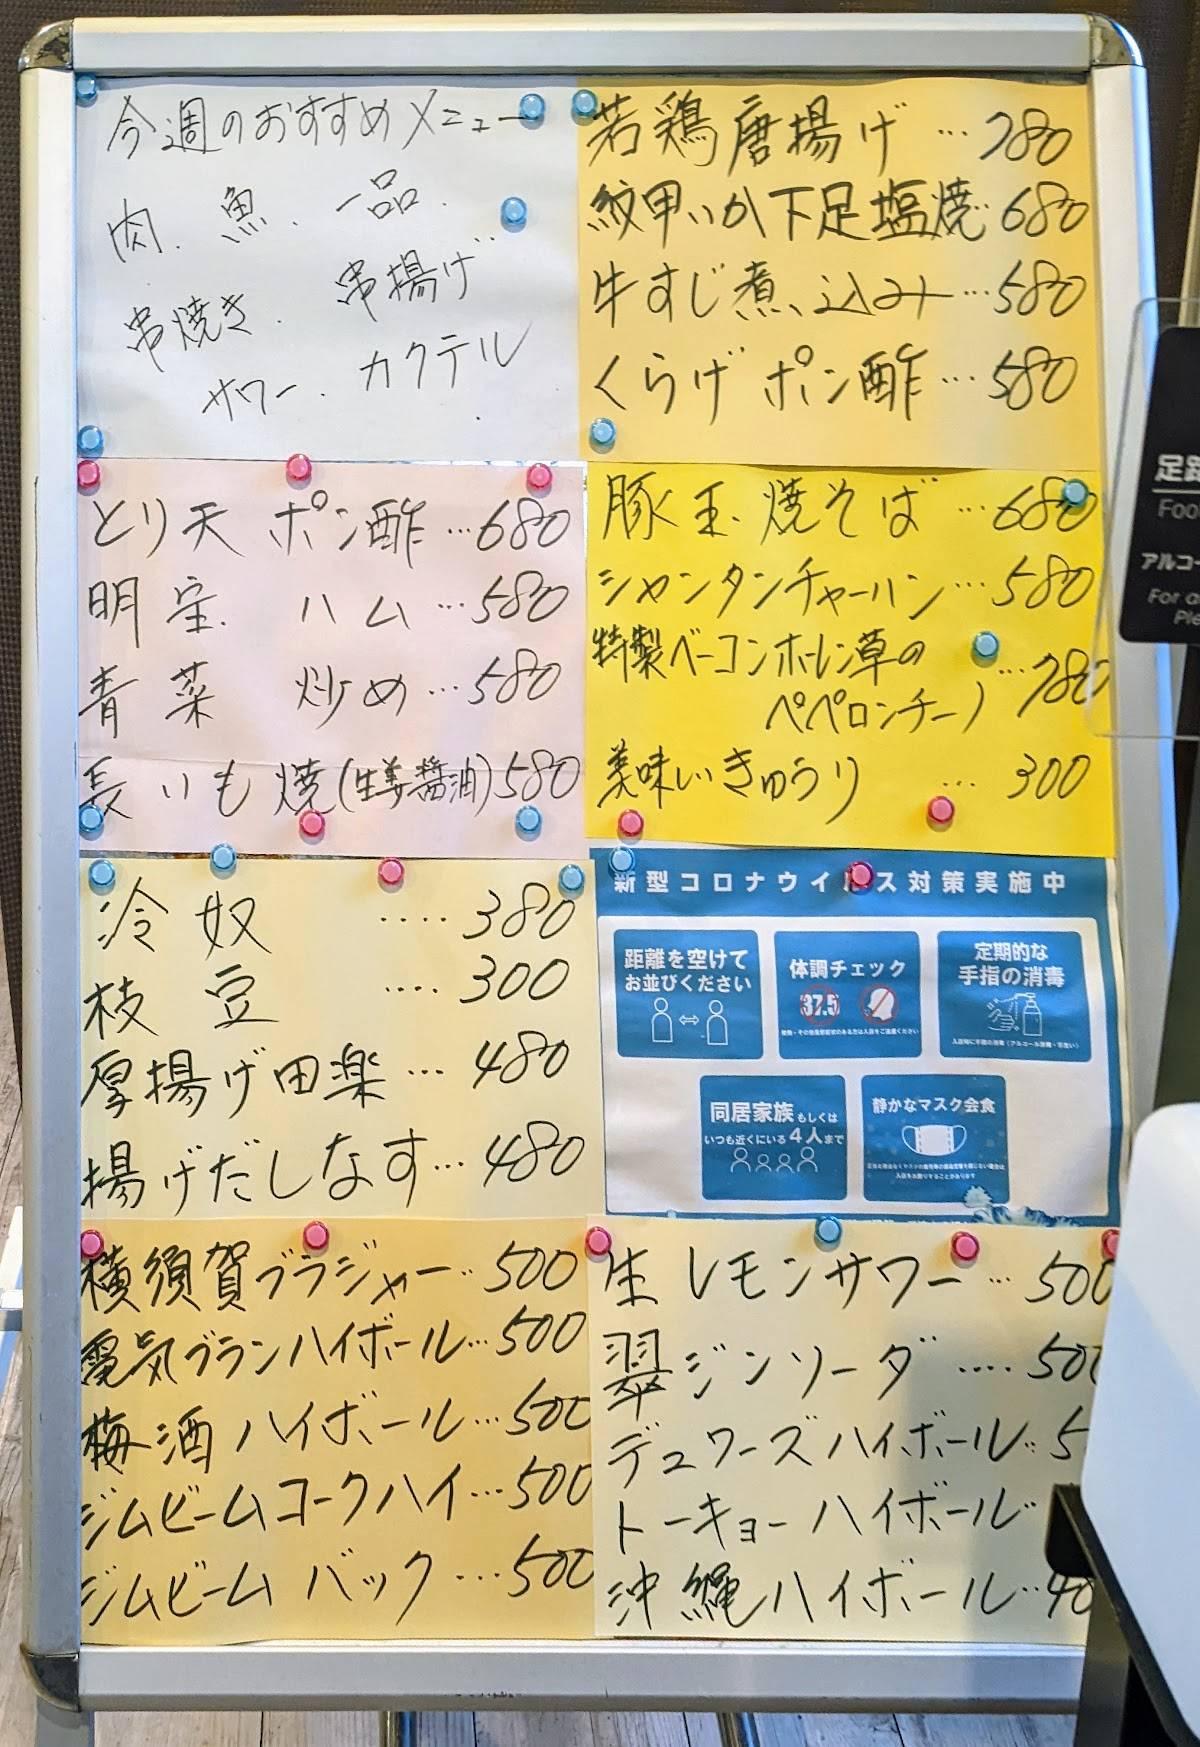 今週のおすすめメニュー
肉．魚．一品．
串焼き．串揚げ
サワー．カクテル
若鶏唐揚げ…780
紋甲いか下足塩焼…680
牛すじ煮込み…580
くらげポン酢…580
とり天 ポン酢…680
明宝 ハム…580
青菜 炒め…580
長いも焼(生姜醤油)580
豚玉焼そば…680
シャンタンチャーハン…580
特製ベーコンホーレン草の
ペペロンチーノ…780
美味しいきゅうり…300
冷奴‥‥380
枝豆‥‥300
厚揚げ田楽…480
揚げだしなす…480
新型コロナウイルス対策実施中
距離を空けて
お並びください
体調チェック
37.5
定期的な
手指の消毒
同居家族もしくは
いつも近くにいる4人まで
静かなマスク会食
横須賀ブラジャー‥500
電気ブランハイボール…500
梅酒ハイボール…500
ジムビームコークハイ…500
ジムビームバック…500
生レモンサワー…500
翠ジンソーダ‥‥500
デュワーズハイボール‥5
トーキョーハイボール
沖縄ハイボール…40
足跡
Foo
アルコー
For a
Ple